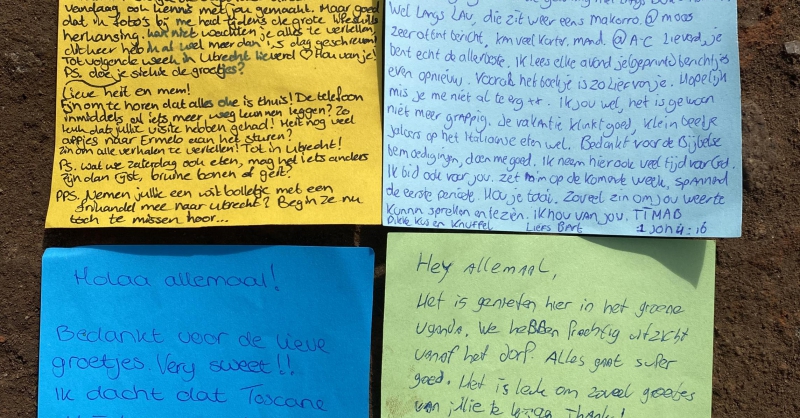 vandaag ook kennis met jou gemaakt. Maar goed
dat in foto's bij me had tijdens de grote
herkansing. wachten je alles te vertellen,
al meer dan 1,5 dag geschreven!
Tot volgende week in Utrecht lieverd ♡ Hou van je!
PS. doe je stelute de groetjes?
Lieve heit en mem!
Fijn om te horen dat alles oke is thuis! De telefoon
inmiddels al iets meer weg kunnen leggen? Zo
leuk dat jullie visite hebben gehad! Heit nog veel
appjes naar Ermelo aan het sturen?
Zin om alle verhalen te vertellen! Tot in Utrecht!
PS. wat we zaterdag ook eten, mag het iets anders
zijn dan rijst, bruine bonen of geit?
PPS. Nemen jullie een wit bolletje met een
frikandel mee naar Utrecht? Begin ze nu
toch te missen hoor...
wel langs LAU, die zit weer eens makorro. @ moos
zeer attent bericht, km veel kortr. mand. @ A-C Lieverd, je
bent echt de allerbeste. Ik lees elke avond je geprinte berichtjes
even opnieuw. Vooral het boekje is zo lief van je. Hopelijk
mis je me niet al te erg xx. Ik jou wel, het is gewoon
niet meer grappig. Je vakantie klinkt goed, klein beetje
jaloers op het Italiaanse eten wel. Bedankt voor de Bijbelse
bemoedigingen, doen me goed. Ik neem hier ook veel tijd voor God.
Ik bid ook voor jou. Zet m in op de komende week, spannend
de eerste periode. Hou je taai. Zoveel zin om jou weer te
kunnen spreken en te zien. Ik hou van jou. TIMAB
Dikke kus en knuffel Liefs Bart 1 Joh 4:16
Holaa allemaal!
Bedankt voor de lieve
groetjes. Very sweet!!
Ik dacht dat Toscane
Hey Allemaal,
Het is genieten hier in het groene
Uganda. We hebben prachtig uitzicht
vanaf het dorp. Alles gaat super
goed. Het is leuk om zoveel groetjes
van jullie te krijgen Thanks!